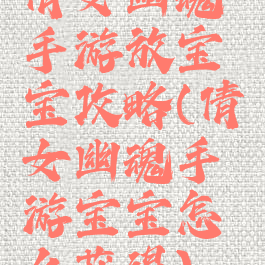 倩女幽魂
手游放宝
宝攻略(倩
女幽魂手
游宝宝怎